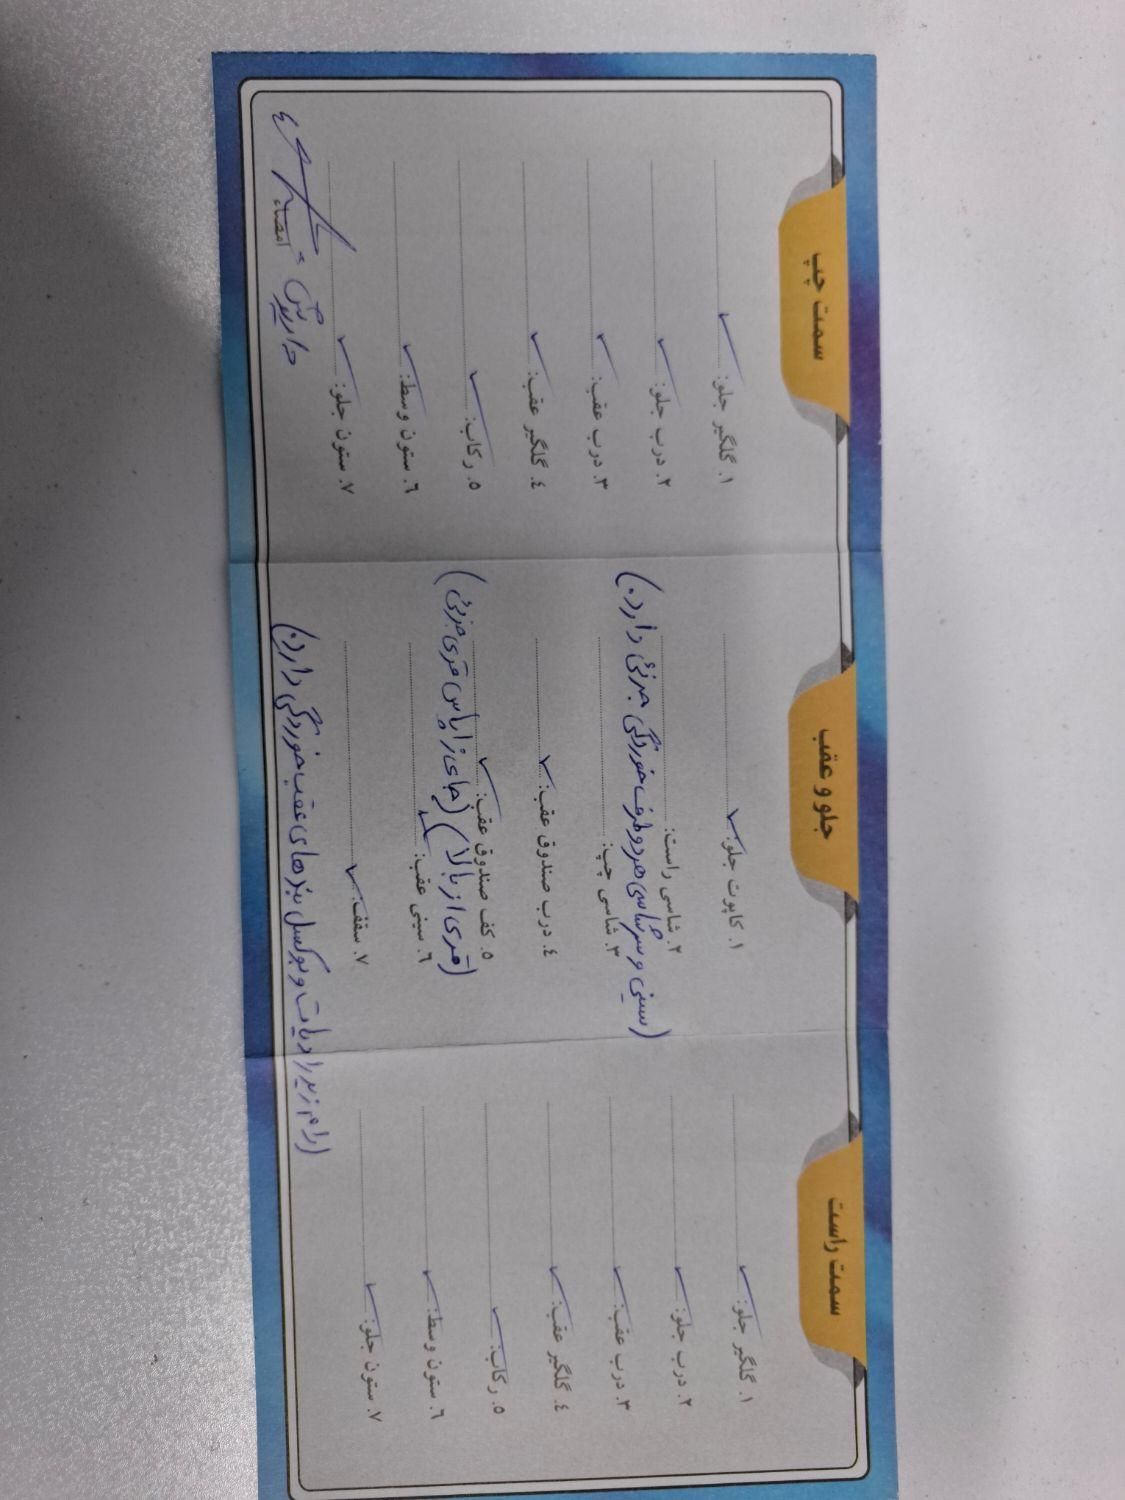 سمت راست
۱. گلگیر جلو: ✓
۲. درب جلو: ✓
۳. درب عقب: ✓
٤. گلگیر عقب: ✓
۵. رکاب: ✓
٦. ستون وسط: ✓
۷. ستون جلو: ✓
جلو و عقب
۱. کاپوت جلو: ✓
۲. شاسی راست:
(سینی و سرشاسی هر دو طرف خوردگی جزئی دارد.)
۳. شاسی چپ:
٤. درب صندوق عقب: ✓
۵. کف صندوق عقب: ✓
(قری از بالا) (جای زاپاس قری جزئی)
٦. سینی عقب:
۷. سقف: ✓
سمت چپ
۱. گلگیر جلو: ✓
۲. درب جلو: ✓
۳. درب عقب: ✓
٤. گلگیر عقب: ✓
۵. رکاب: ✓
٦. ستون وسط: ✓
۷. ستون جلو: ✓
(رام زیر رادیات و بوکسل بندهای عقب خوردگی دارد.)
داریوش
امضاء